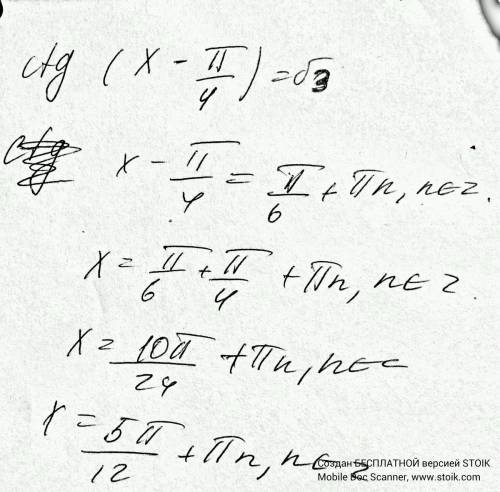 ctg (x - π/4) = √3
x - π/4 = π/6 + πn, n∈z.
x = π/6 + π/4 + πn, n∈z.
x = 10π/24 + πn, n∈
x = 5π/12 + πn, n∈z
Создан БЕСПЛАТНОЙ версией STOIK
Mobile Doc Scanner, www.stoik.com